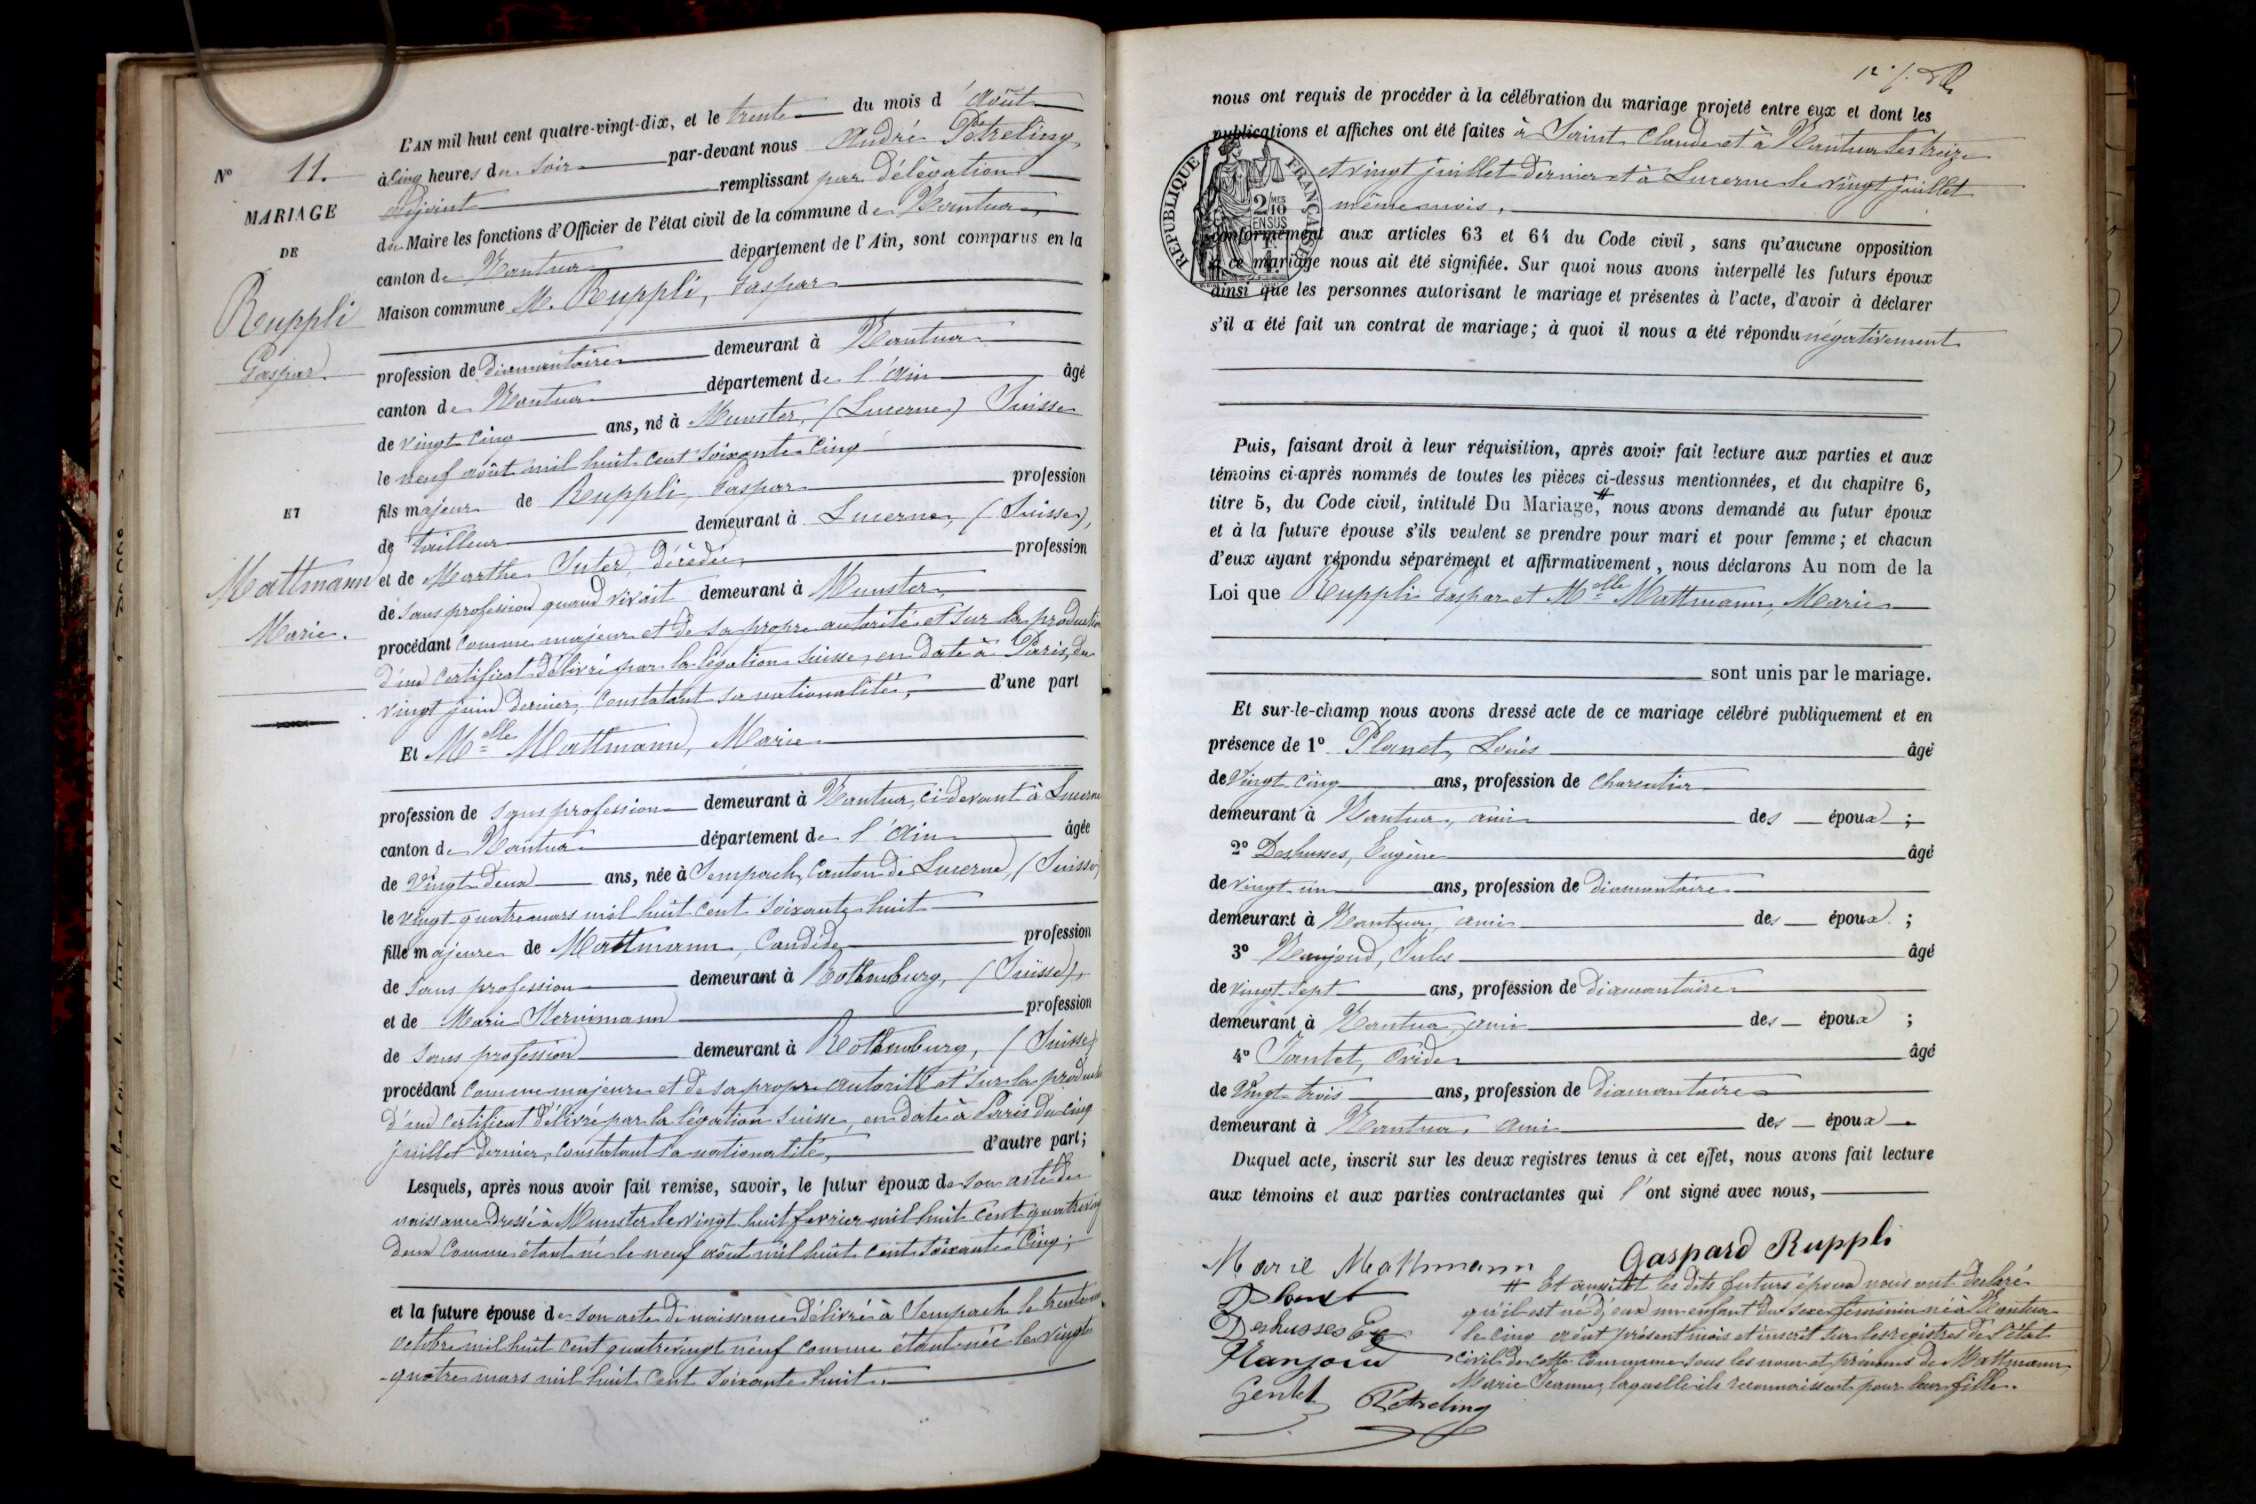 N° 11.
MARIAGE
DE
Ruppli
Gaspar
ET
Mattmann
Marie.
L'AN mil huit cent quatre-vingt-dix, et le trente du mois d'Août
à cinq heures du soir par-devant nous André Pétreling
adjoint remplissant par délégation
du Maire les fonctions d'Officier de l'état civil de la commune de Nantua,
canton de Nantua département de l'Ain, sont comparus en la
Maison commune M. Ruppli, Gaspar
profession de diamantaire demeurant à Nantua
canton de Nantua département de l'Ain âgé
de vingt cinq ans, né à Munster, (Lucerne) Suisse
le neuf août mil huit cent soixante cinq
fils majeur de Ruppli, Gaspar profession
de tailleur demeurant à Lucerne, (Suisse),
et de Marthe Suter, décédée, profession
de sans profession quand vivait demeurant à Munster,
procédant comme majeur et de sa propre autorité et sur la production
d'un certificat délivré par la légation suisse, en date à Paris, du
vingt juin dernier, constatant sa nationalité, d'une part
Et Melle Mattmann, Marie
profession de sans profession demeurant à Nantua, ci-devant à Lucerne
canton de Nantua département de l'Ain âgée
de vingt deux ans, née à Sempach, Canton de Lucerne, (Suisse)
le vingt quatre mars mil huit cent soixante huit
fille majeure de Mattmann, Candide profession
de sans profession demeurant à Rothenburg, (Suisse),
et de Marie profession
de sans profession demeurant à Rothenburg, (Suisse)
procédant comme majeure et de sa propre autorité et sur la production
d'un certificat délivré par la légation suisse, en date à Paris du cinq
juillet dernier, constatant sa nationalité, d'autre part;
Lesquels, après nous avoir fait remise, savoir, le futur époux de son acte de
naissance dressé à Munster le vingt huit février mil huit cent quatrevingt
deux comme étant né le neuf août mil huit cent soixante cinq;
et la future épouse de son acte de naissance délivré à Sempach le trente un
octobre mil huit cent quatrevingt neuf comme étant née le vingt
quatre mars mil huit cent soixante huit.
12
nous ont requis de procéder à la célébration du mariage projeté entre eux et dont les
publications et affiches ont été faites à Saint Claude et à Nantua les treize
et vingt juillet dernier et à Lucerne le vingt juillet
même mois,
REPUBLIQUE FRANÇAISE
2 MES
10
EN SUS
conformément aux articles 63 et 64 du Code civil, sans qu'aucune opposition
à ce mariage nous ait été signifiée. Sur quoi nous avons interpellé les futurs époux
ainsi que les personnes autorisant le mariage et présentes à l'acte, d'avoir à déclarer
s'il a été fait un contrat de mariage; à quoi il nous a été répondu négativement
Puis, faisant droit à leur réquisition, après avoir fait lecture aux parties et aux
témoins ci-après nommés de toutes les pièces ci-dessus mentionnées, et du chapitre 6,
titre 5, du Code civil, intitulé Du Mariage, # nous avons demandé au futur époux
et à la future épouse s'ils veulent se prendre pour mari et pour femme; et chacun
d'eux ayant répondu séparément et affirmativement, nous déclarons Au nom de la
Loi que Ruppli Gaspar et Melle Mattmann, Marie
sont unis par le mariage.
Et sur-le-champ nous avons dressé acte de ce mariage célébré publiquement et en
présence de 1° Planet, Louis âgé
de vingt cinq ans, profession de charcutier
demeurant à Nantua, ami des époux;
2° Deshusses, Eugène âgé
de vingt un ans, profession de diamantaire
demeurant à Nantua, ami des époux;
3° Nanjoud, Jules âgé
de vingt sept ans, profession de diamantaire
demeurant à Nantua, ami des époux;
4° Jantet, Ovide âgé
de vingt trois ans, profession de diamantaire
demeurant à Nantua, ami des époux.
Duquel acte, inscrit sur les deux registres tenus à cet effet, nous avons fait lecture
aux témoins et aux parties contractantes qui l'ont signé avec nous,
Gaspard Ruppli
Marie Mathmann
# Et aussitôt les dits futurs époux nous ont déclaré
qu'il est né d'eux un enfant du sexe féminin né à Nantua
le cinq août présent mois et inscrit sur les registres de l'état
civil de cette commune sous les nom et prénoms de Mattmann,
Marie Jeanne, laquelle ils reconnaissent pour leur fille.
Planet
Deshusses Eg
Nanjoud
Jantet Pétreling